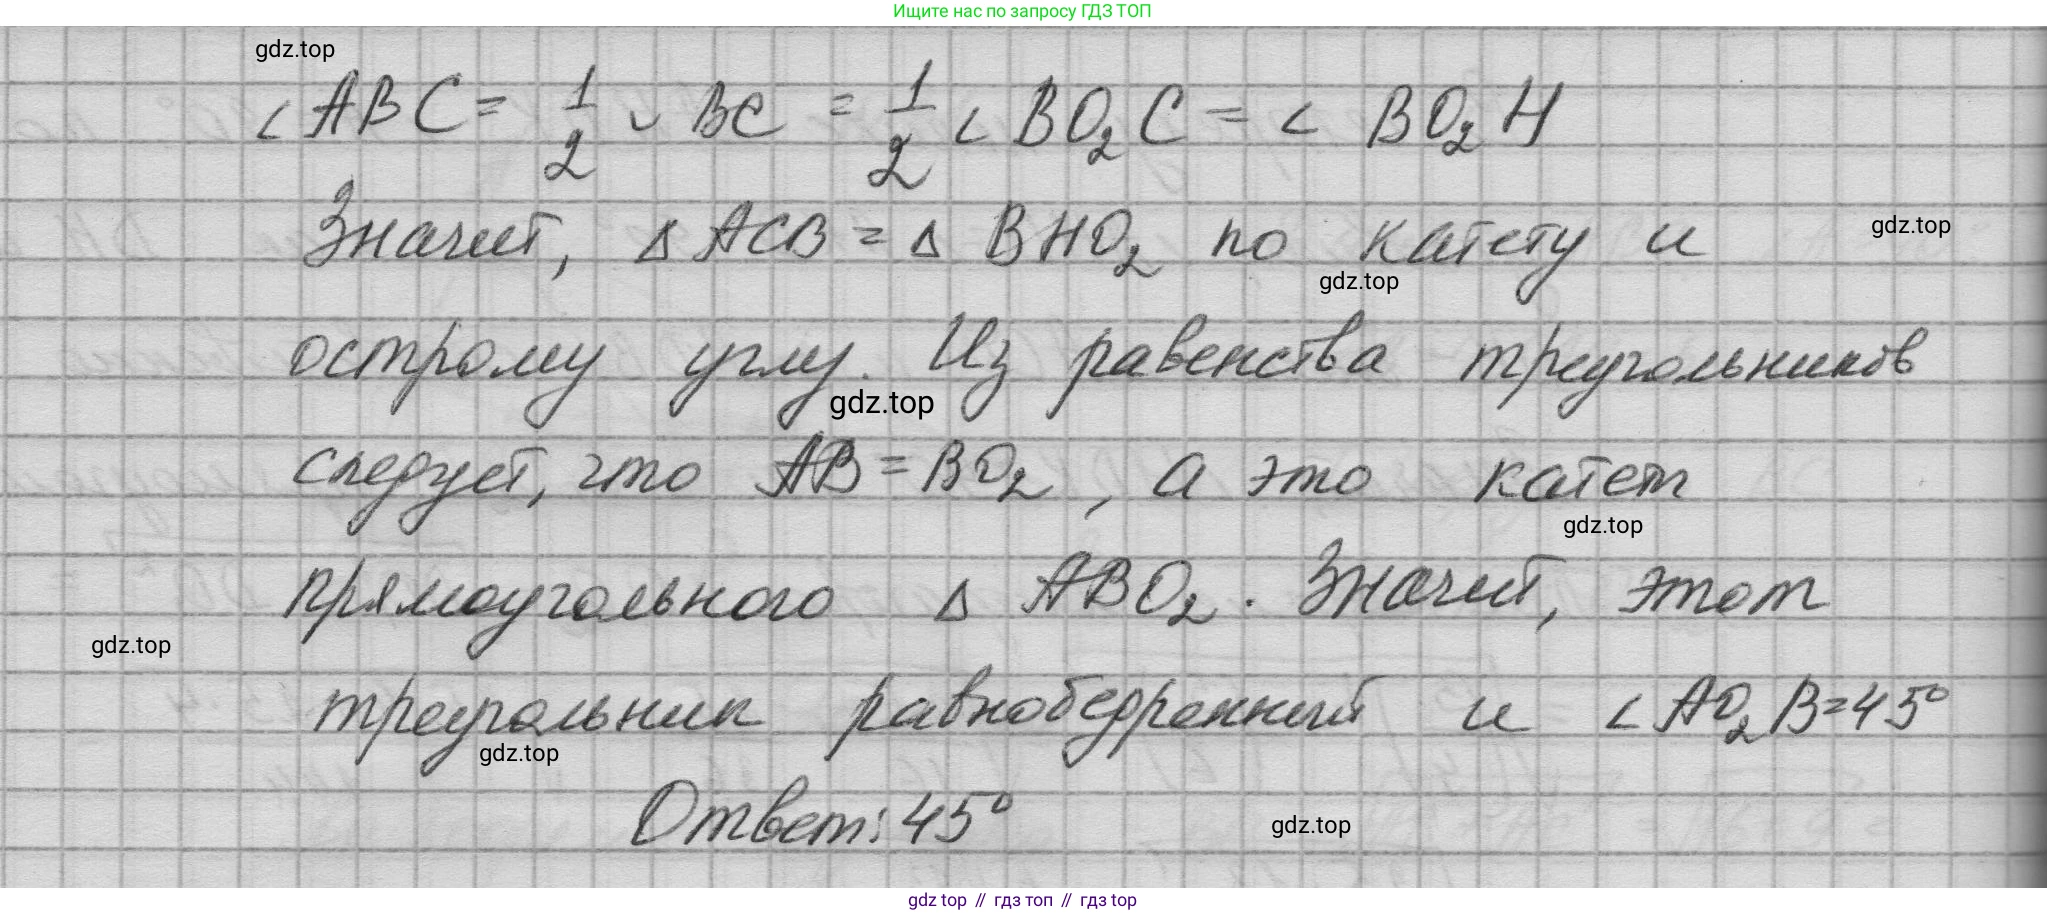 Ищите нас по запросу ГДЗ ТОП
gdz.top
∠ ABC = 1/2 ◡ BC = 1/2 ∠ BO₂C = ∠ BO₂H
Значит, Δ ACB = Δ BHO₂ по катету и
gdz.top
gdz.top
острому углу. Из равенства треугольников
gdz.top
следует, что AB = BO₂, а это катет
gdz.top
прямоугольного Δ ABO₂. Значит, этот
gdz.top
треугольник равнобедренный и ∠ AO₂B = 45°
gdz.top
Ответ: 45°
gdz.top
gdz top // гдз топ // гдз top